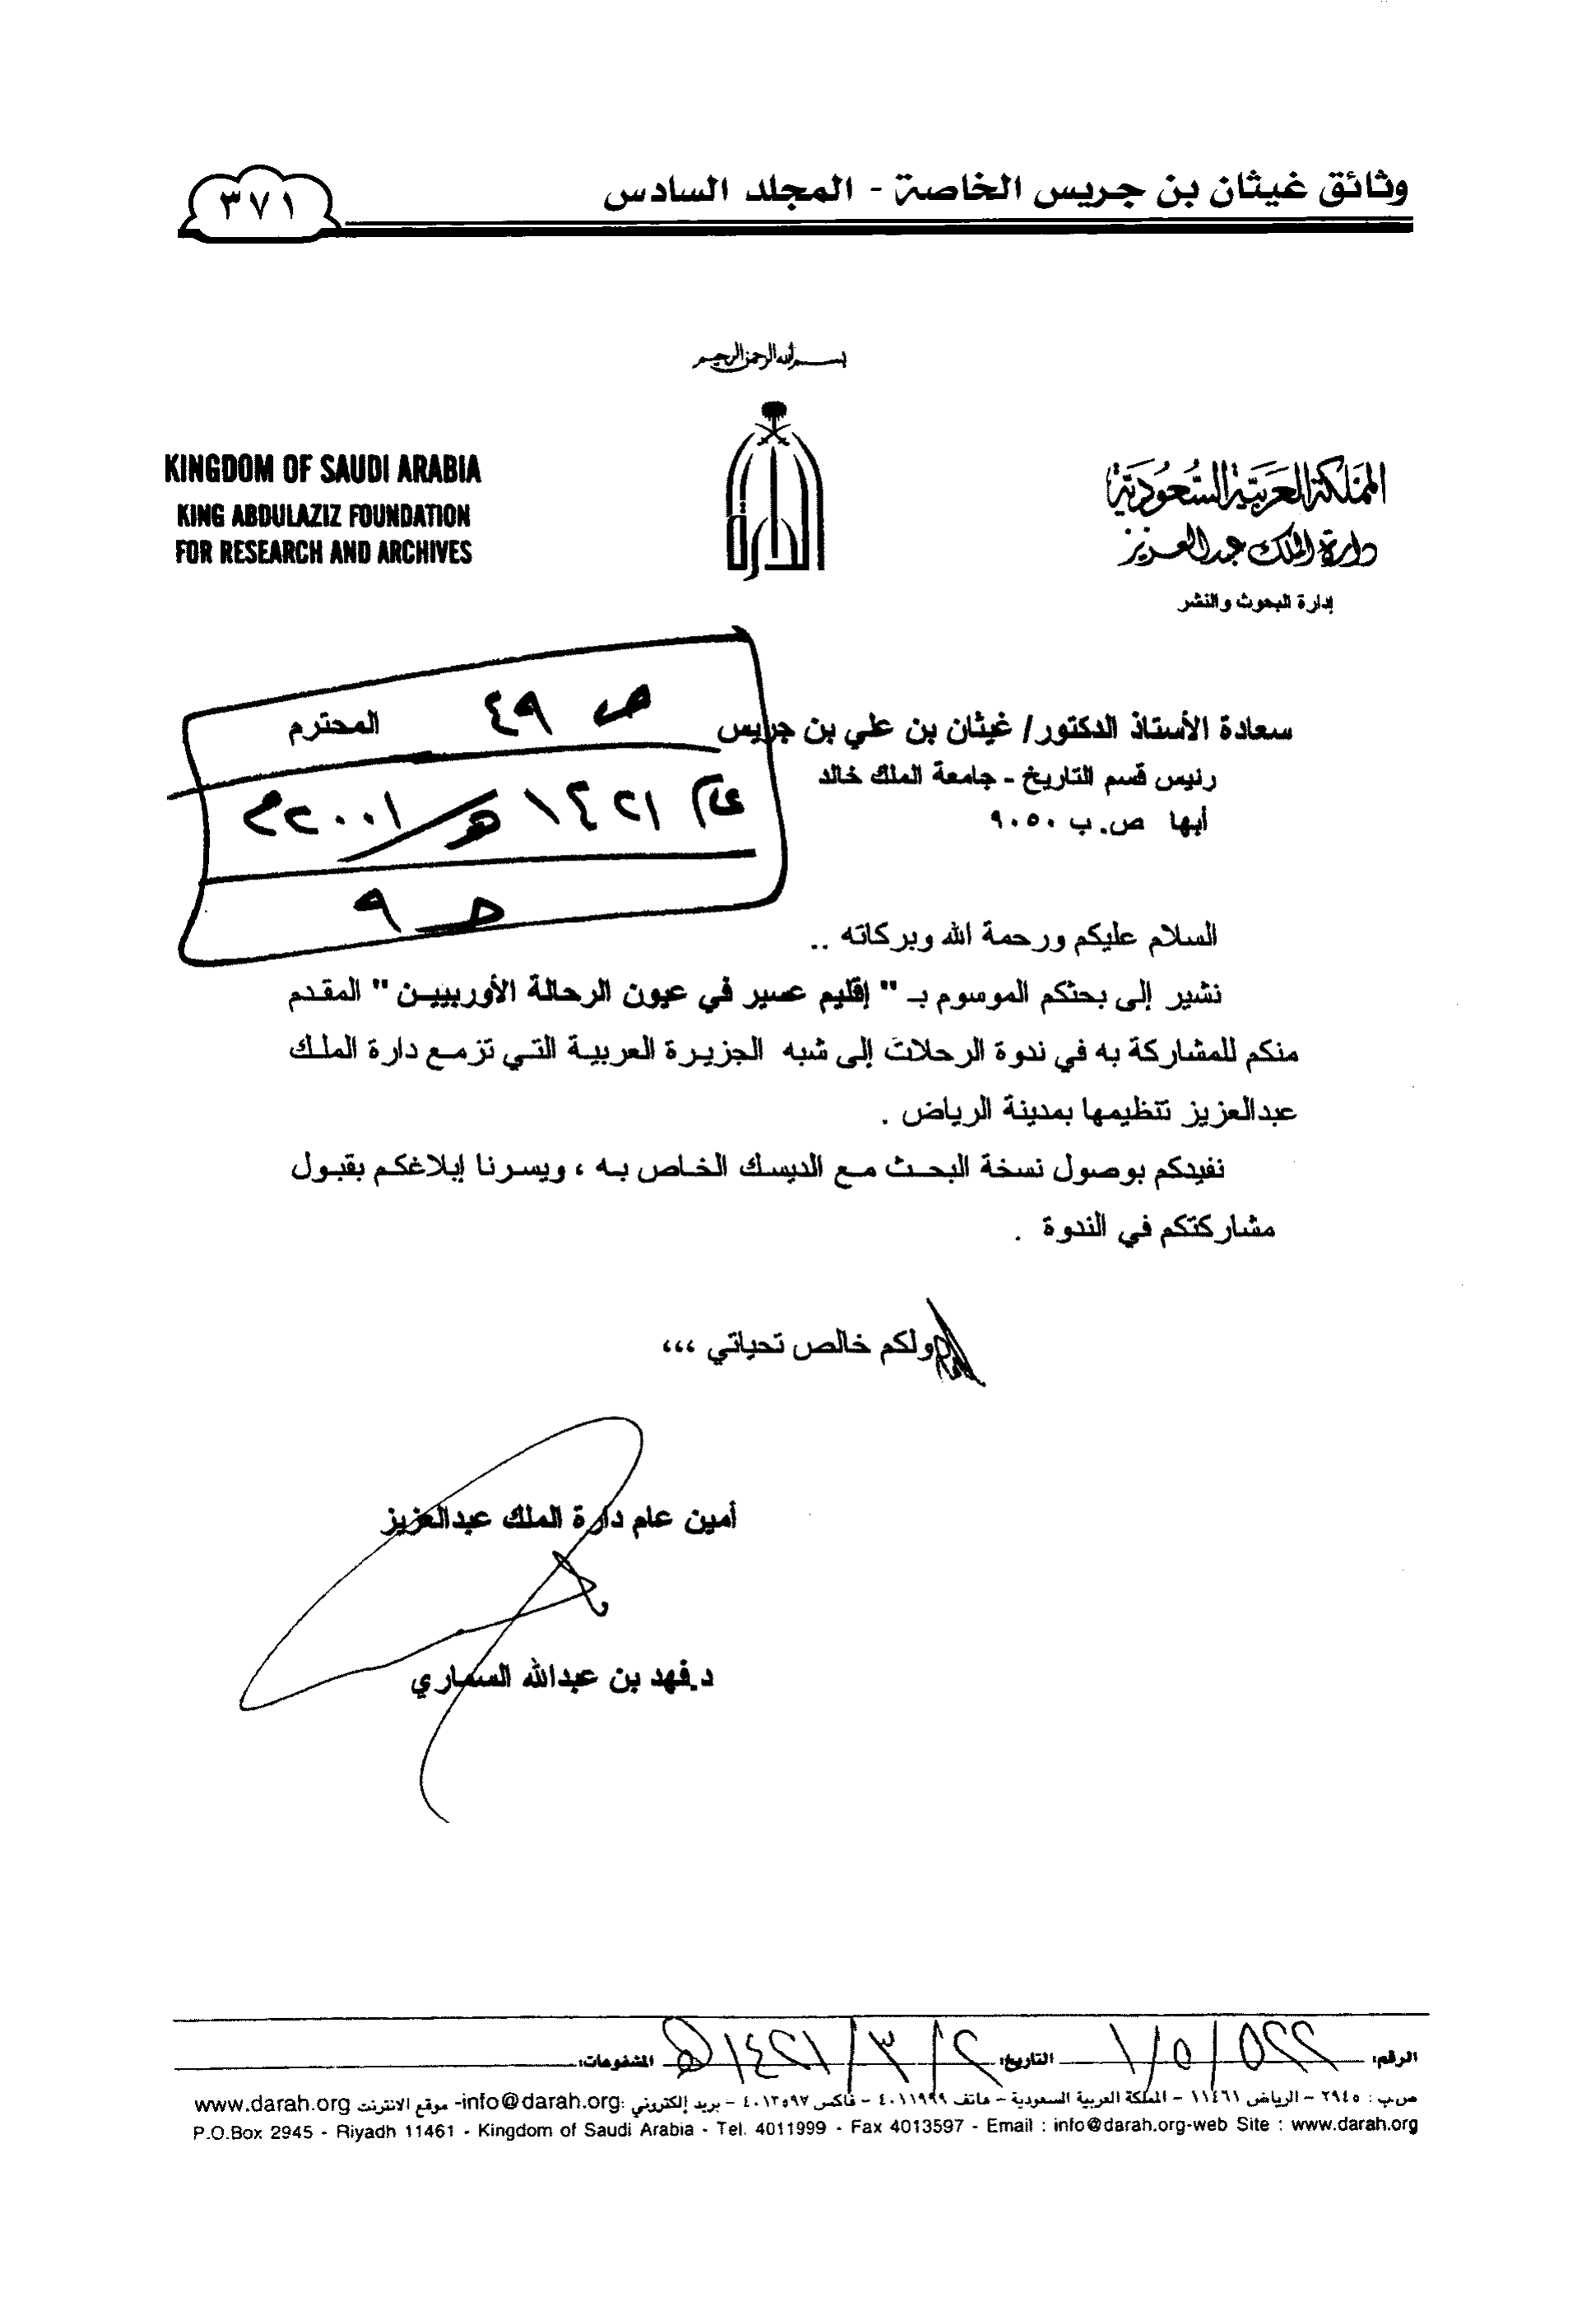 وثائق غيثان بن جريس الخاصة - المجلد السادس
٣٧١
بسم الله الرحمن الرحيم
KINGDOM OF SAUDI ARABIA
KING ABDULAZIZ FOUNDATION
FOR RESEARCH AND ARCHIVES
الدارة
المملكة العربية السعودية
دارة الملك عبدالعزيز
إدارة البحوث والنشر
ص ٤٩
عام ١٤٢١هـ/٢٠٠١م
ص ٩
سعادة الأستاذ الدكتور/ غيثان بن علي بن جريس المحترم
رئيس قسم التاريخ - جامعة الملك خالد
أبها ص.ب ٩٠٥٠
السلام عليكم ورحمة الله وبركاته ..
نشير إلى بحثكم الموسوم بـ " إقليم عسير في عيون الرحالة الأوربيين " المقدم
منكم للمشاركة به في ندوة الرحلات إلى شبه الجزيرة العربية التي تزمع دارة الملك
عبدالعزيز تنظيمها بمدينة الرياض .
نفيدكم بوصول نسخة البحث مع الديسك الخاص به ، ويسرنا إبلاغكم بقبول
مشاركتكم في الندوة .
ولكم خالص تحياتي ،،،
أمين عام دارة الملك عبدالعزيز
د.فهد بن عبدالله السماري
الرقم: التاريخ: المشفوعات:
ص.ب : ٢٩٤٥ - الرياض ١١٤٦١ - المملكة العربية السعودية - هاتف ٤٠١١٩٩٩ - فاكس ٤٠١٣٥٩٧ - بريد إلكتروني :info@darah.org- موقع الانترنت www.darah.org
P.O.Box 2945 - Riyadh 11461 - Kingdom of Saudi Arabia - Tel. 4011999 - Fax 4013597 - Email : info@darah.org-web Site : www.darah.org